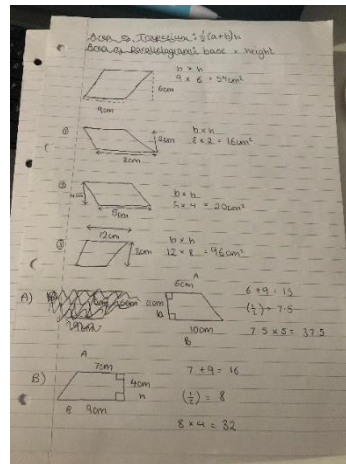 Area of Trapezium = ½(a+b)h
Area of Parallelogram = base × height
b × h
9 × 6 = 54cm²
6cm
9cm
①
2cm
8cm
b × h
8 × 2 = 16cm²
②
4cm
5cm
b × h
5 × 4 = 20cm²
③
12cm
8cm
b × h
12 × 8 = 96cm²
A)
A
6cm
10cm
B
6 + 9 = 15
(½) = 7.5
7.5 × 5 = 37.5
B)
A
7cm
4cm
h
B 9cm
7 + 9 = 16
(½) = 8
8 × 4 = 32